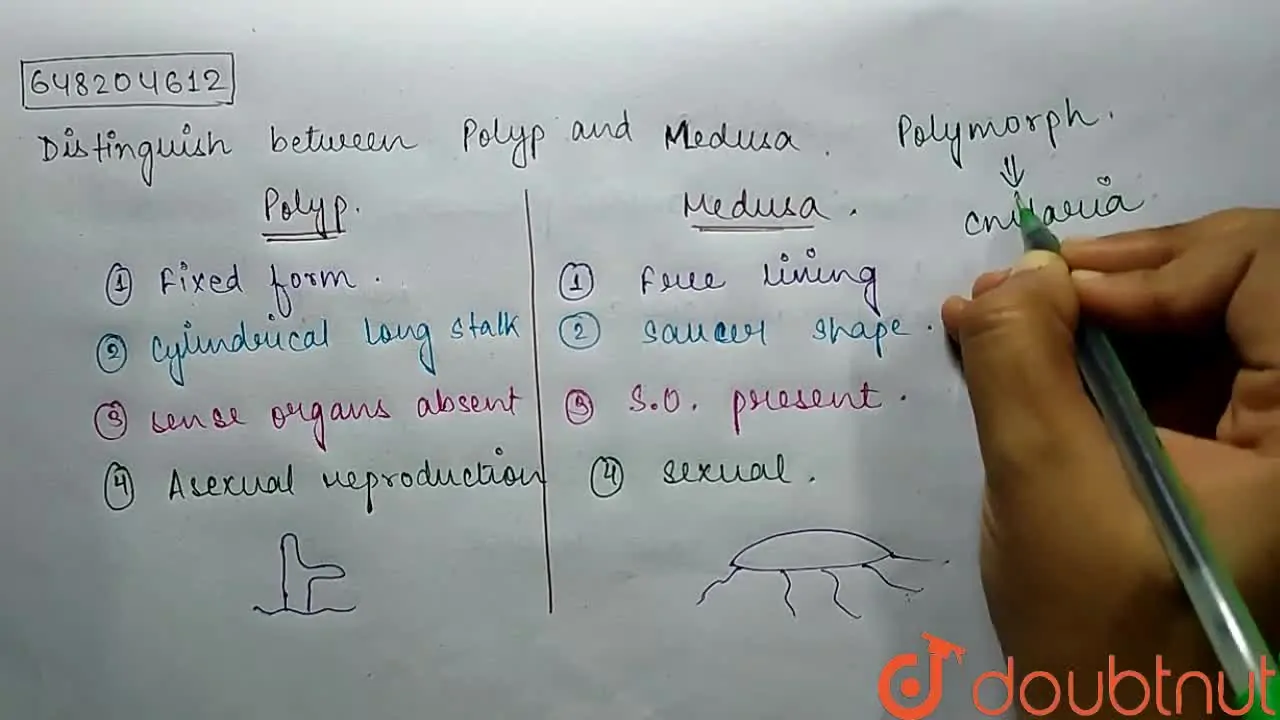 648204612
Distinguish between Polyp and Medusa.
Polymorph.
⇓
Cnidaria
Polyp.
① Fixed form.
② Cylindrical long stalk
③ sense organs absent
④ Asexual reproduction
Medusa.
① Free lining
② saucer shape.
③ S.O. present.
④ sexual.
doubtnut